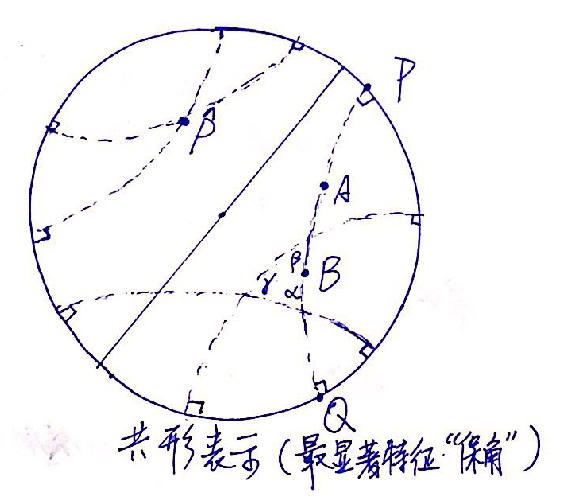 P
β
A
β
γ
B
α
Q
共形表示(最显著特征"保角")